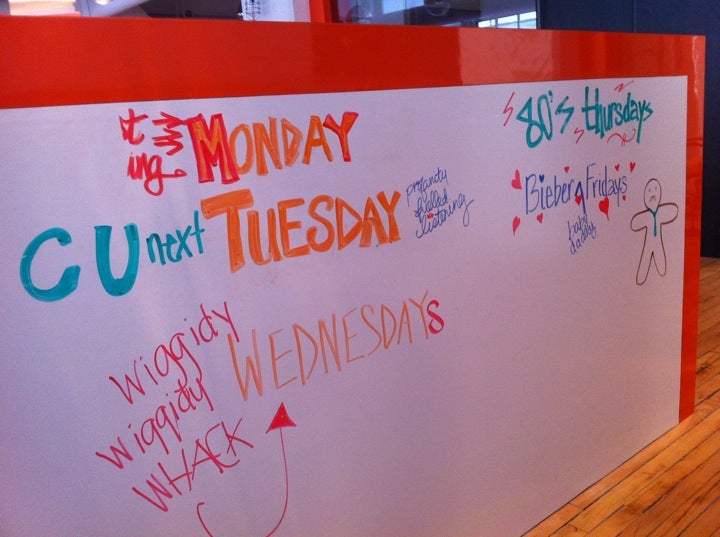 MONDAY
C U next TUESDAY
profanity
filled
listening
wiggidy
wiggidy
WHACK
WEDNESDAYs
80's thursdays
Bieber Fridays
^
baby
daddy